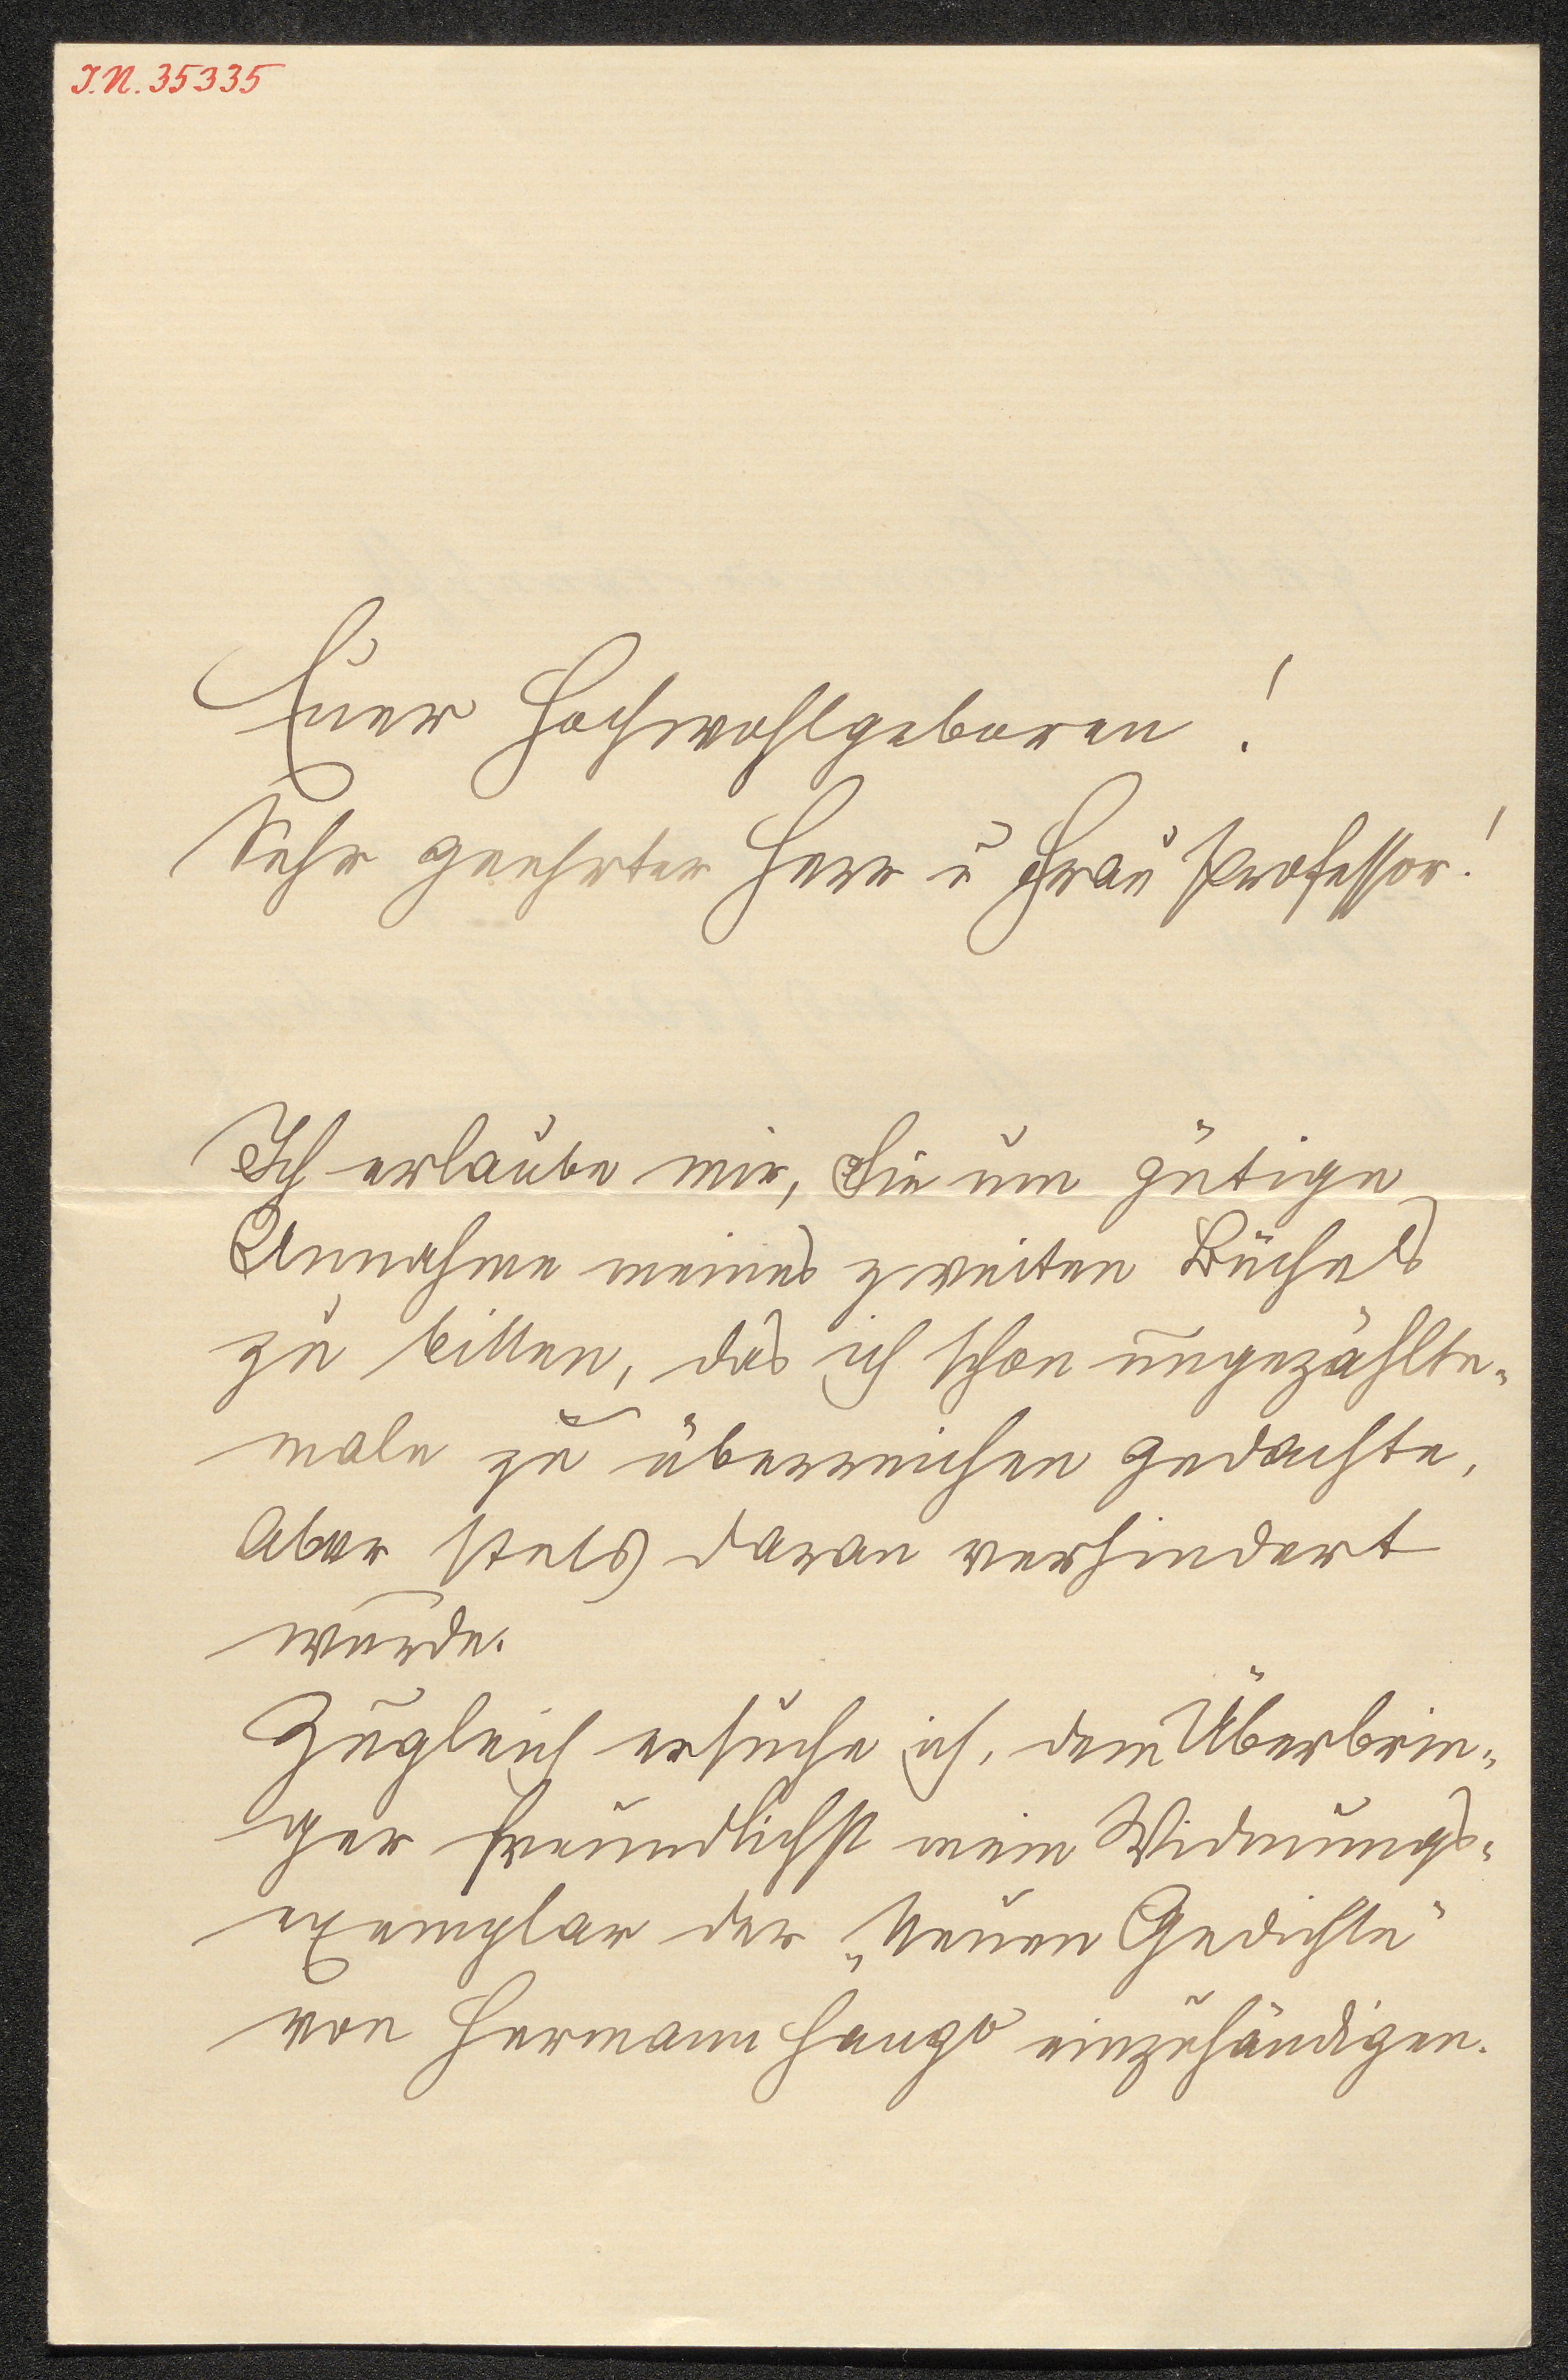 I.N. 35335
Euer Hochwohlgeboren!
Sehr geehrter Herr u Frau Professor!
Ich erlaube mir, Sie um gütige
Annahme meines zweiten Büchels
zu bitten, das ich schon ungezählte-
male zu überreichen gedachte,
aber stets daran verhindert
wurde.
Zugleich ersuche ich, dem Überbrin-
ger freundlichst mein Widmungs-
exemplar der „Neuen Gedichte"
von Hermann Hango einzuhändigen.